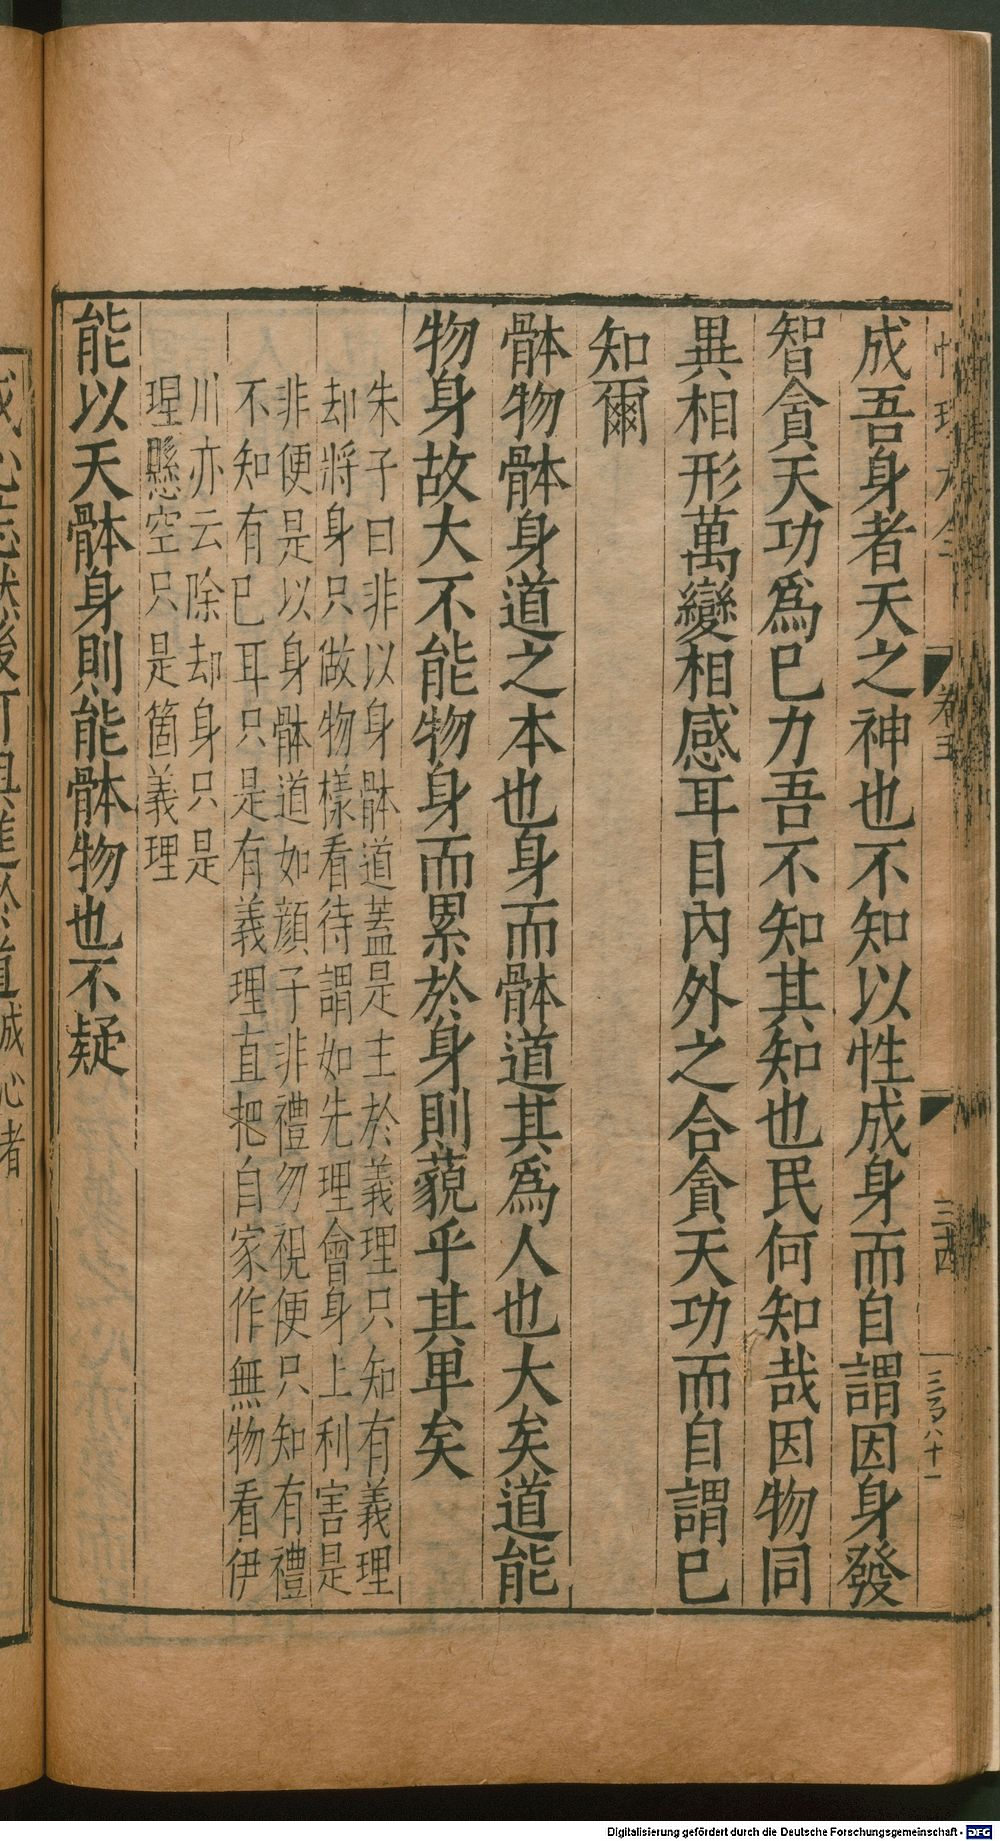 性理大全
卷五
三十四
成吾身者天之神也不知以性成身而自謂因身發
智貪天功爲已力吾不知其知也民何知哉因物同
異相形萬變相感耳目內外之合貪天功而自謂已
知爾
骵物骵身道之本也身而骵道其爲人也大矣道能
物身故大不能物身而累於身則藐乎其卑矣
朱子曰非以身骵道蓋是主於義理只知有義理
却將身只做物樣看待謂如先理會身上利害是
非便是以身骵道如顔子非禮勿視便只知有禮
不知有已耳只是有義理直把自家作無物看伊
川亦云除却身只是
理懸空只是箇義理
能以天骵身則能骵物也不疑
成心忘然後可與進於道
成心者
Digitalisierung gefördert durch die Deutsche Forschungsgemeinschaft - DFG